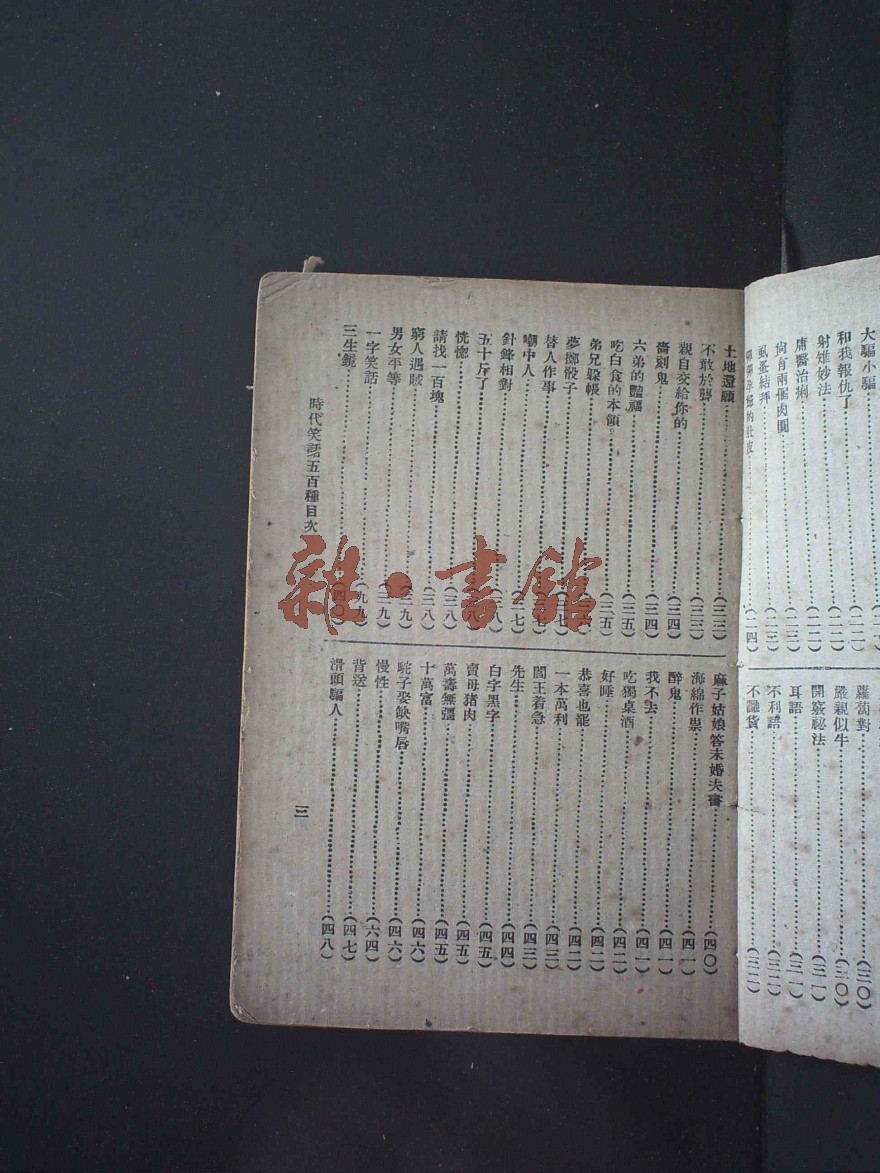 大騙小騙
和我報仇了
射雉妙法
庸醫治痢
向有兩個肉圓
虱蚤結拜
(二一)
(二二)
(二二)
(二三)
(二三)
(二四)
蘿蔔對(三〇)
嚴親似牛(三〇)
開竅祕法(三一)
耳語(三一)
不利語(三二)
不識貨(三二)
土地還願(三三)
不敢於聾(三三)
親自交給你的(三四)
嗇刻鬼(三四)
六弟的豔福(三五)
吃白食的本領。(三五)
弟兄躲帳
夢擲骰子
替人作事
嘲中人
針鋒相對
五十斤了
恍惚(三八)
請找一百塊(三八)
窮人遇賊(三八)
男女平等(三九)
一字笑話(九九)
三生鏡(四〇)
麻子姑娘答未婚夫書(四〇)
海綿作祟(四一)
醉鬼(四一)
我不去(四一)
吃獨桌酒(四二)
好睡(四二)
恭喜也罷(四二)
一本萬利(四三)
閻王着急(四三)
先生(四四)
白字黑字(四五)
賣母猪肉(四五)
萬壽無彊(四五)
十萬富(四六)
駝子娶缺嘴唇(四六)
慢性(六四)
背送(四七)
滑頭騙人(四八)
時代笑話五百種目次
三
雜·書館